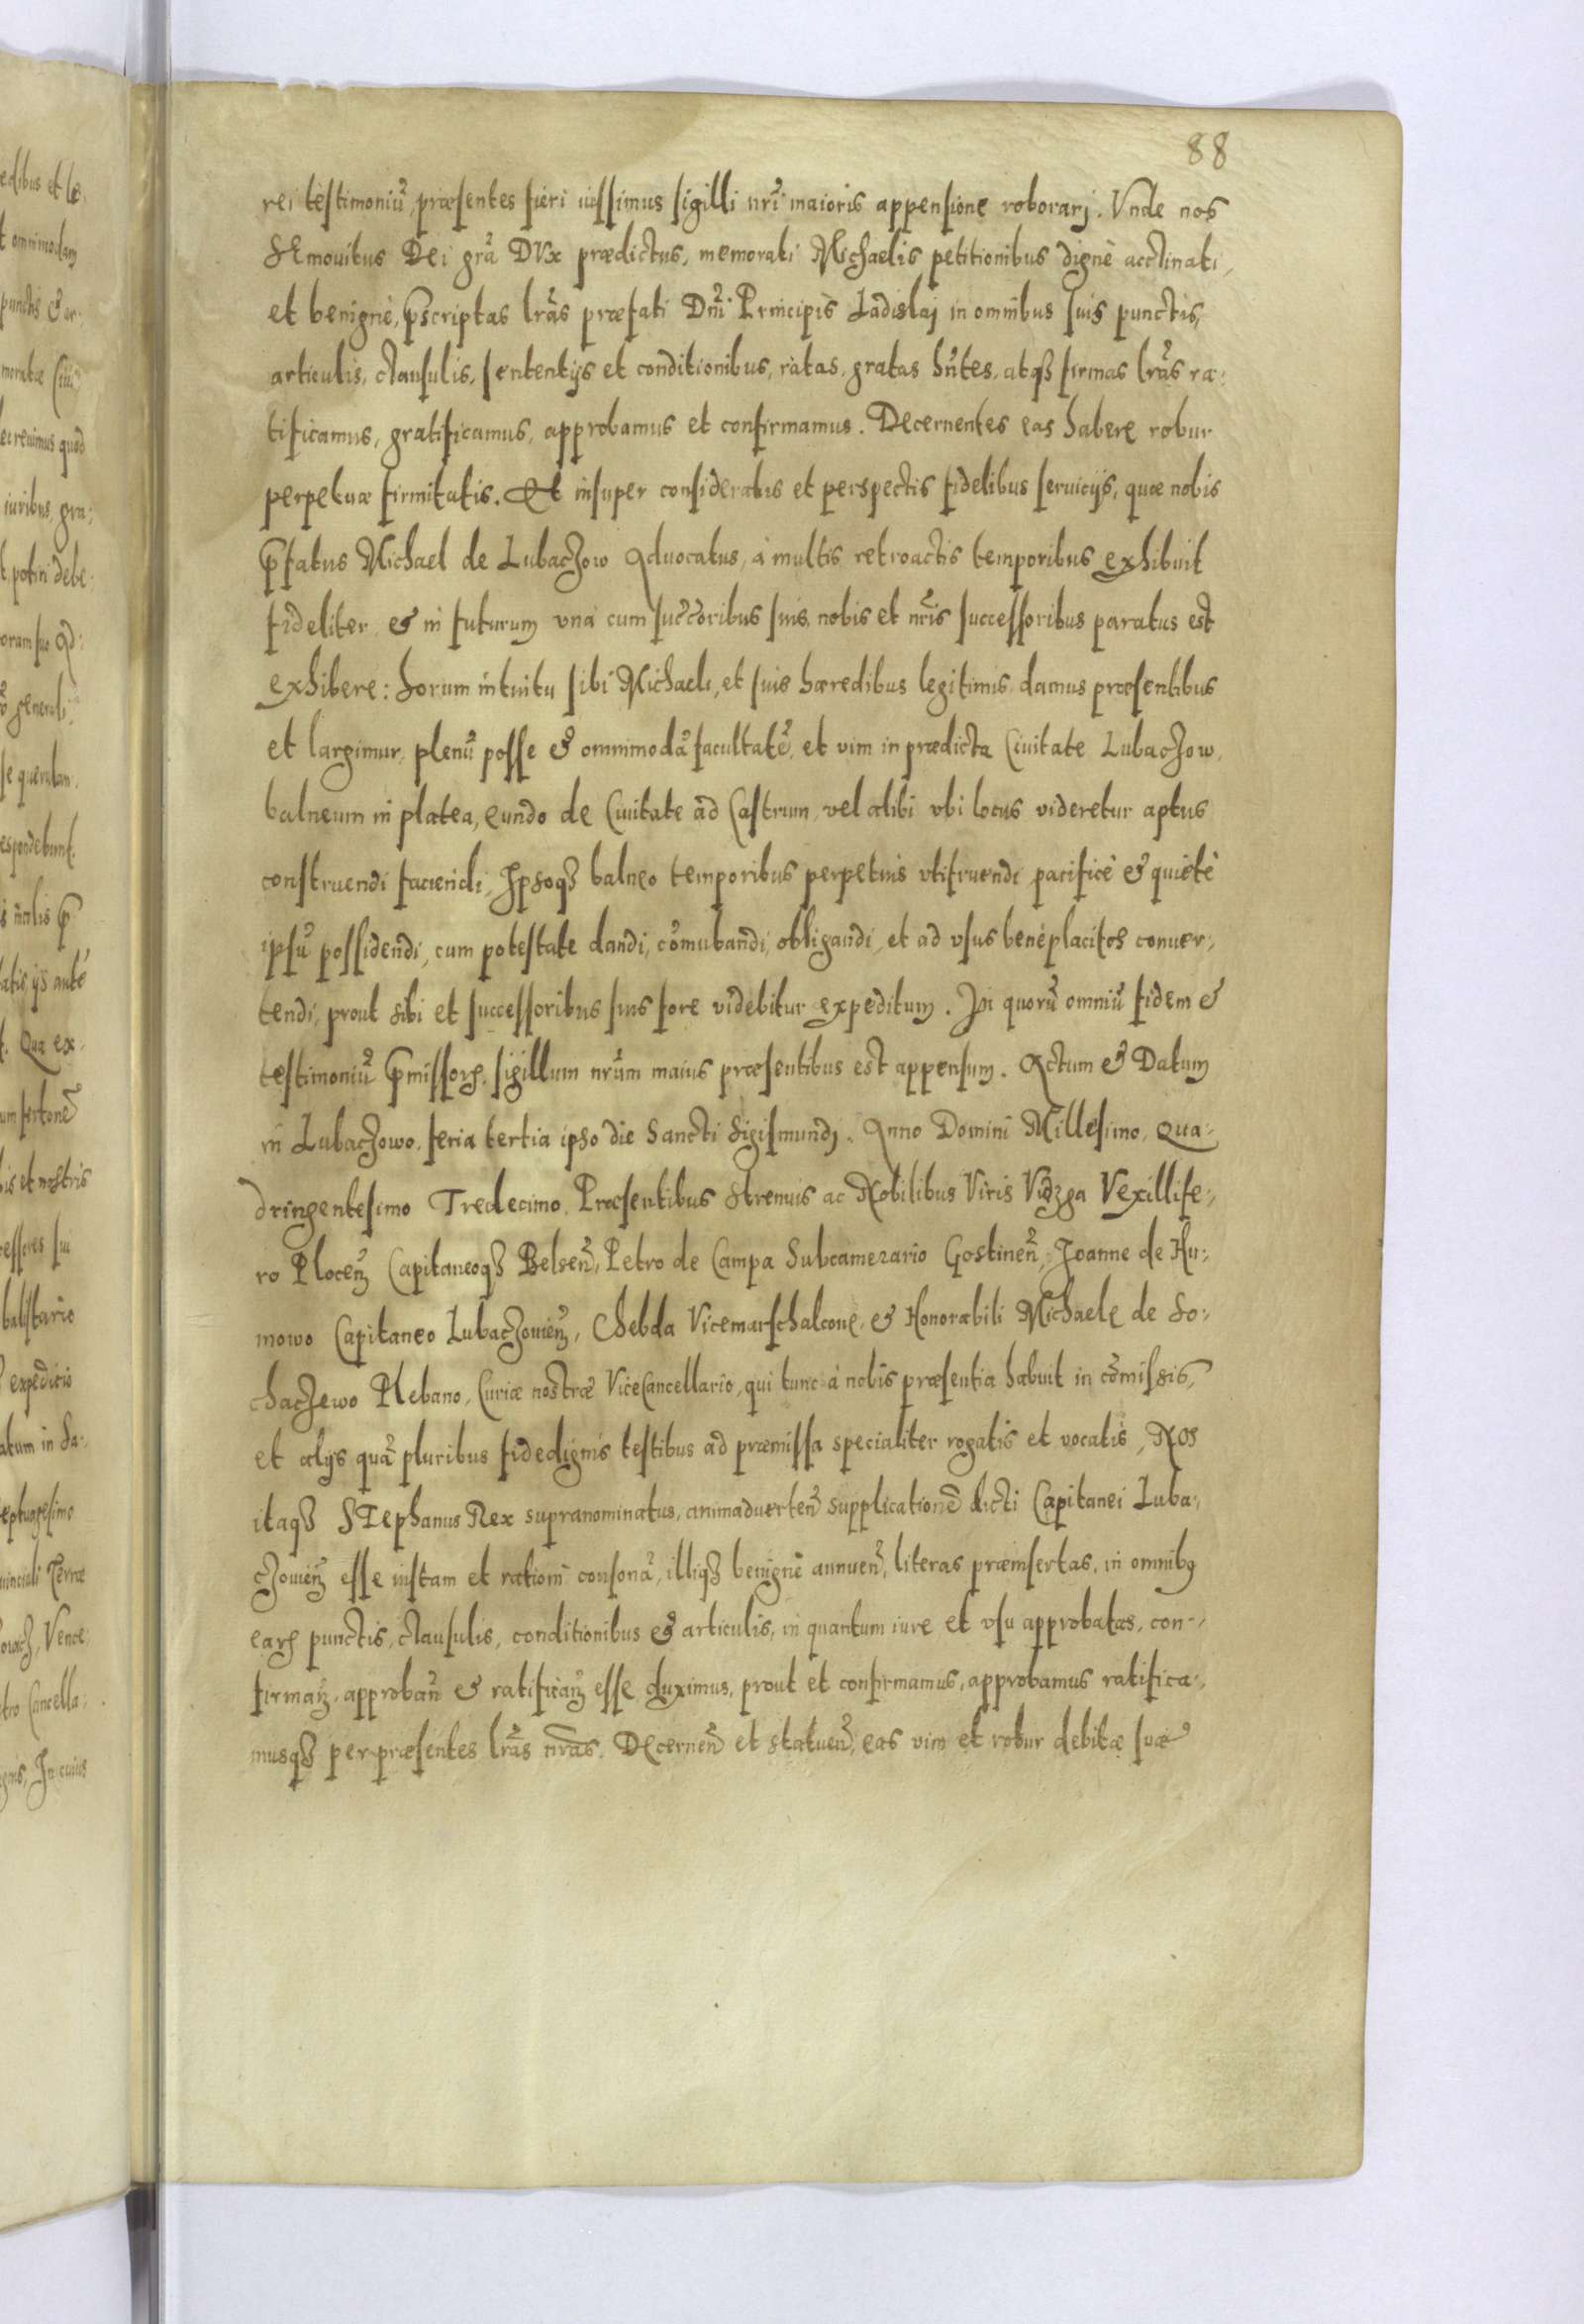 88
rei testimoniũ, præsentes fieri iussimus sigilli nr̃i maioris appensione roborarj. Vnde nos
SEmouitus Dei grã DVx prædictus, memorati Michaelis petitionibus dignè acclinati,
et benignè, p̃scriptas lrãs præfati Dñi Principis Ladislaj in omnibus suis punctis,
articulis, clausulis, sententijs et conditionibus, ràtas, gratas hñtes, atq3 firmas lrãs ra-
tificamus, gratificamus, approbamus et confirmamus. Decernentes eas habere robur
perpetuæ firmitatis. Et insuper consideratis et perspectis fidelibus seruicijs, quæ nobis
p̃fatus Michael de Lubaczow Aduocatus, à multis retroactis temporibus exhibuit
fideliter & in futurum vnà cum succ̃oribus suis, nobis et nr̃is successoribus paratus est
exhibere: horum intuitu sibi Michaeli, et suis hæredibus legitimis damus præsentibus
et largimur, plenũ posse & omnimodã facultatẽ, et vim in prædicta Ciuitate Lubaczow,
balneum in platea, eundo de Ciuitate ad Castrum, vel alibi vbi locus videretur aptus
construendi faciendi, Ipsoq3 balneo temporibus perpetuis vtifruendi, pacificè & quietè
ipsũ possidendi, cum potestate dandi, cõmutandi, obligandi, et ad vsus beneplacitos conuer-
tendi, prout sibi et successoribus suis fore videbitur expeditum. In quorũ omniũ fidem &
testimoniũ p̃missorꝝ, sigillum nrũm maius præsentibus est appensum. Actum & Datum
in Lubaczowo, feria tertia ipso die Sancti Sigismundj. Anno Domini Millesimo, Qua-
dringentesimo Tredecimo. Præsentibus Strenuis ac Nobilibus Viris Vidzga Vexillife-
ro Plocen̄ Capitaneoq3 Belsen̄, Petro de Campa Subcamerario Gostinen̄, Joanne de Hu-
mowo Capitaneo Lubaczouien̄, Chebda Vicemarschalcone, & Honorabili Michaele de So-
chaczewo Plebano, Curiæ nostræ ViceCancellario, qui tunc à nobis præsentia habuit in cõmissis,
et alijs quã pluribus fidedignis testibus ad præmissa specialiter rogatis et vocatis, Nos
itaq3 STephanus Rex supranominatus, animaduerten̄ supplicationẽ dicti Capitanei Luba-
czouien̄ esse iustam et rationi consonã, illiq3 benignè annuen̄, literas præinsertas, in omnibꝯ
earꝝ punctis, clausulis, conditionibus & articulis, in quantum iure et vsu approbatas, con-
firman̄, approban̄ & ratifican̄ esse duximus, prout et confirmamus, approbamus ratifica-
musq3 per præsentes lrãs nrãs. Decernen̄ et statuen̄, eas vim et robur debitæ suæ